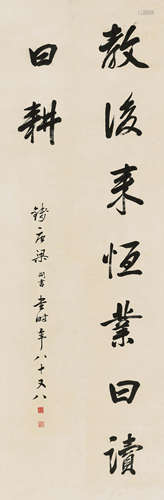 教後来恒業曰讀
曰耕
錢唐梁同書時年八十又八